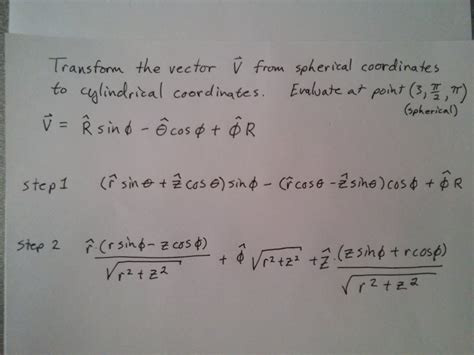 Transform the vector V⃗ from spherical coordinates
to cylindrical coordinates. Evaluate at point (3, π/2, π)
(spherical)
V⃗ = R̂ sinϕ − θ̂ cosϕ + ϕ̂ R
step 1 (r̂ sinθ + ẑ cosθ) sinϕ − (r̂ cosθ − ẑ sinθ) cosϕ + ϕ̂ R
step 2 r̂ (r sinϕ − z cosϕ) / √(r² + z²) + ϕ̂ √(r² + z²) + ẑ (z sinϕ + r cosϕ) / √(r² + z²)